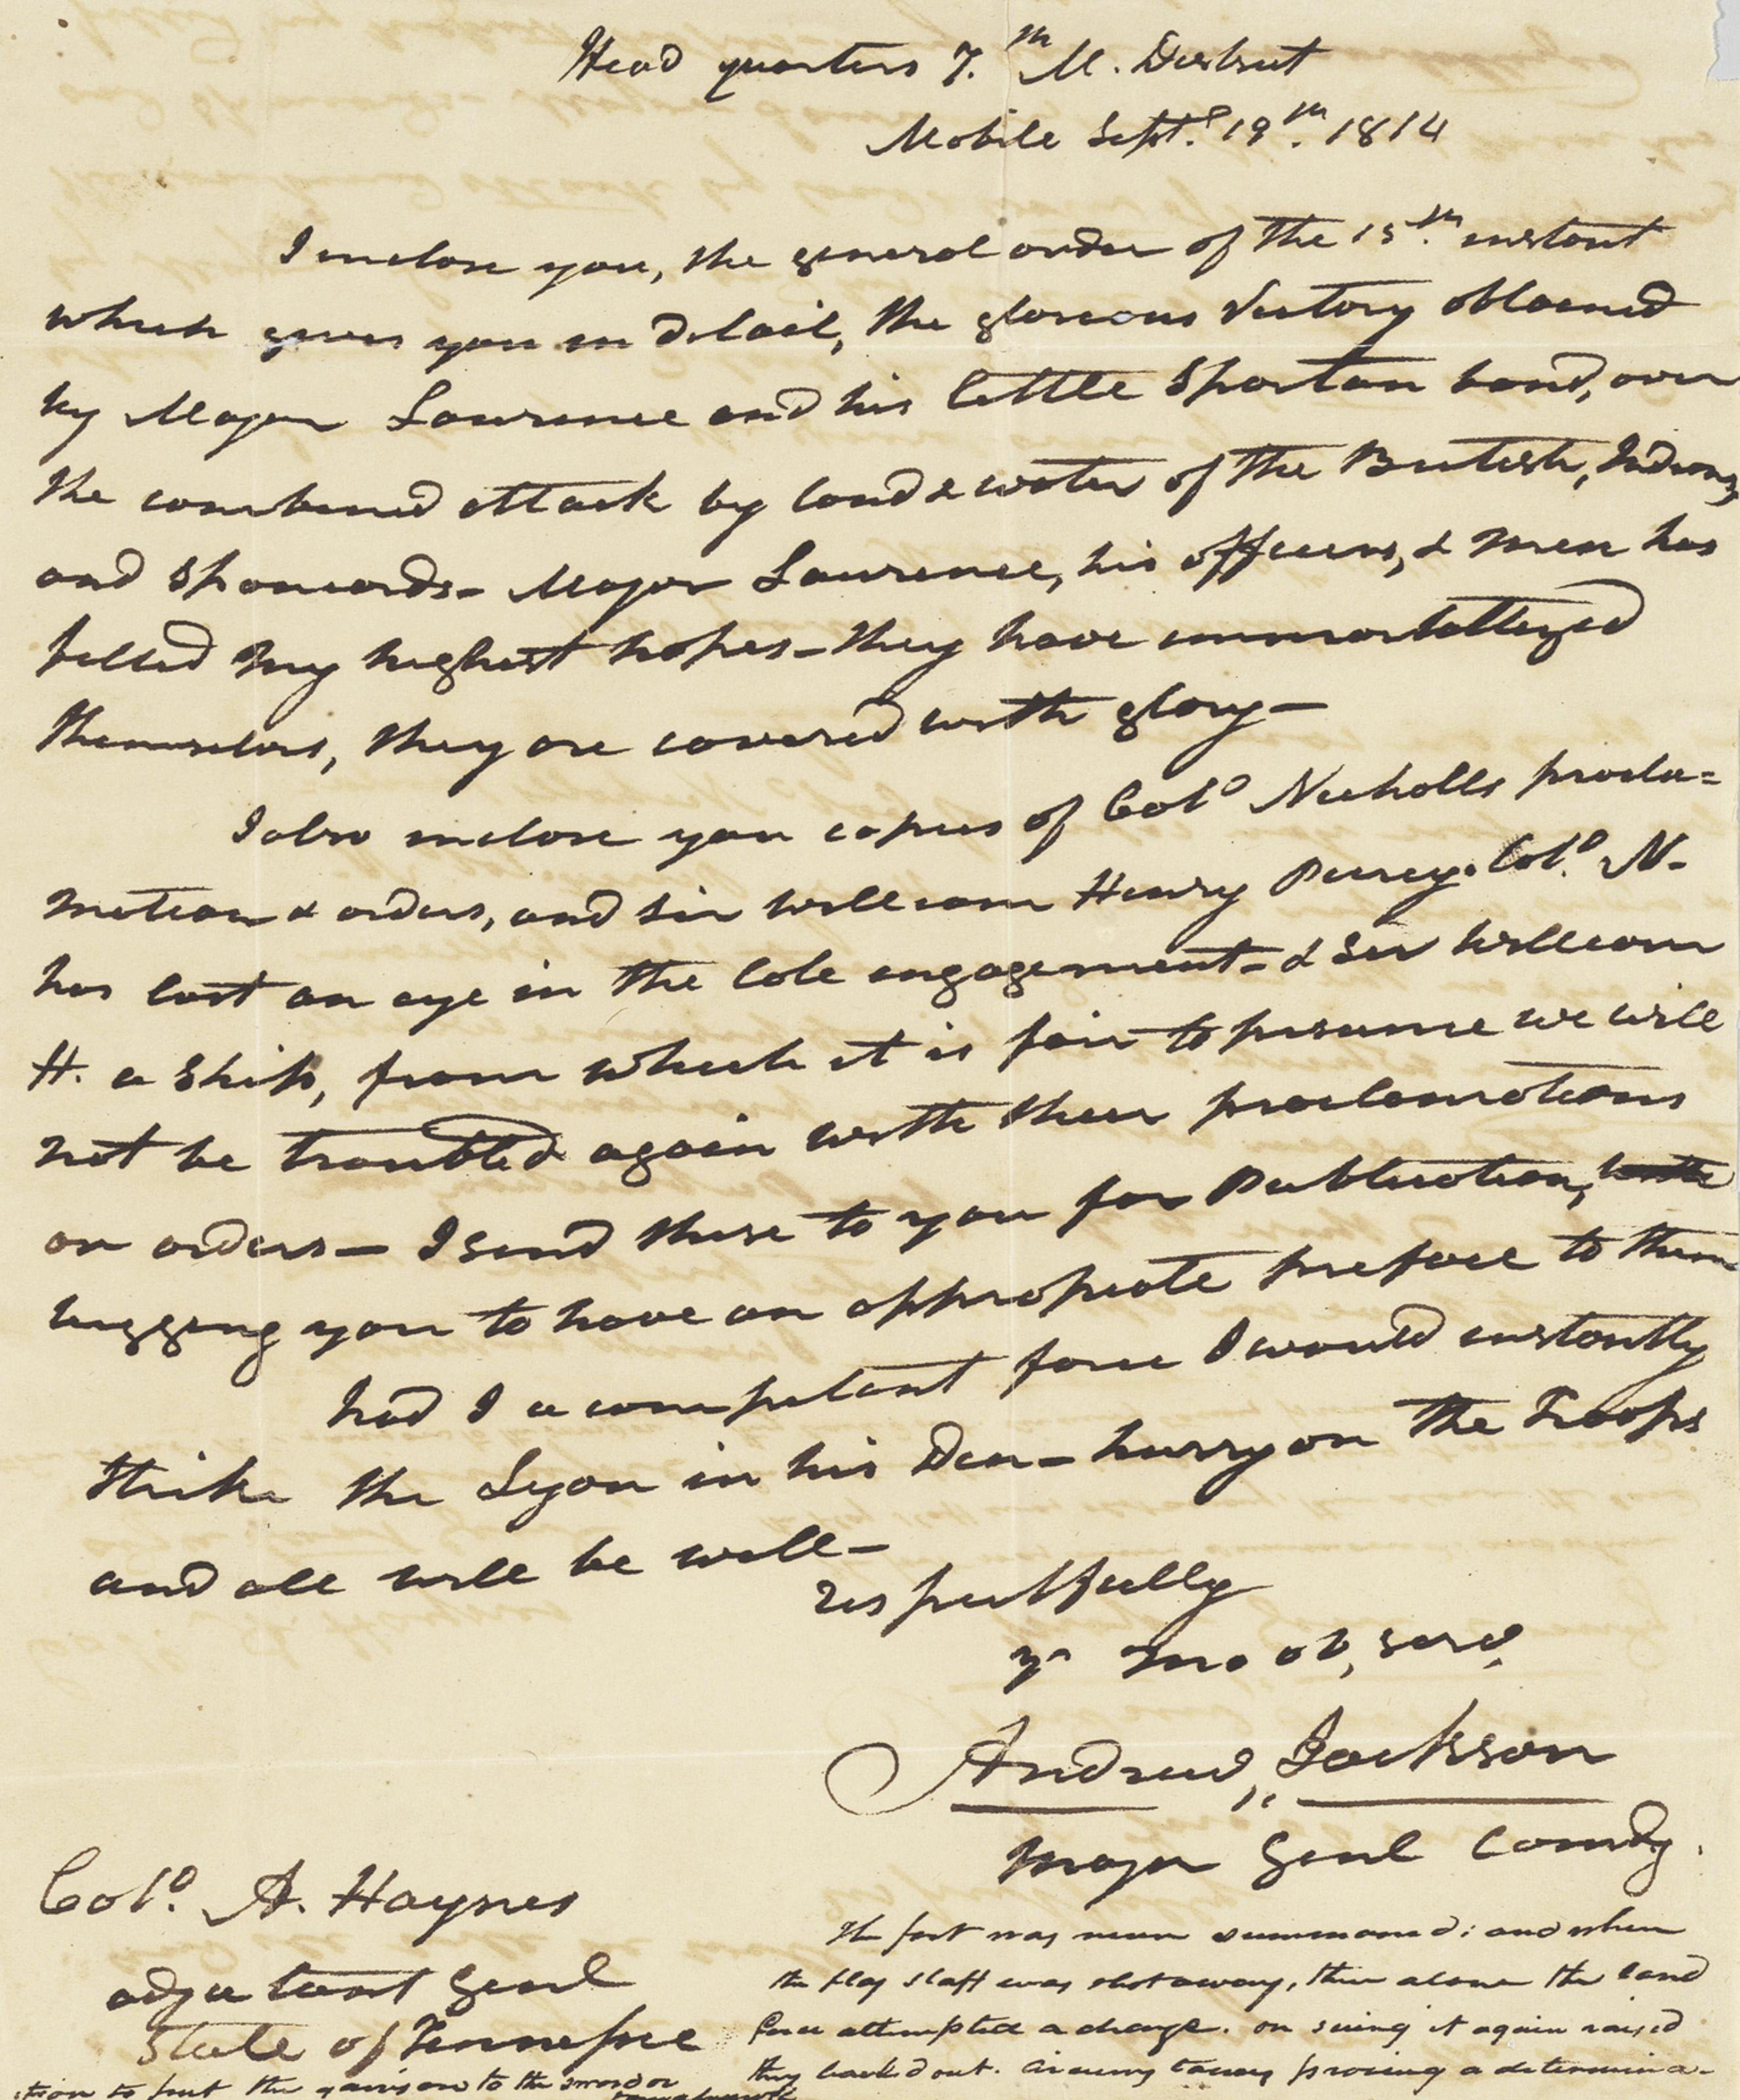 Head quarters 7.th M. District
Mobile Sept.r 19th. 1814
I inclose you, the general order of the 15th. instant
which gives you in detail, the glorious Victory obtained
by Major Lawrence and his little Spartan band, over
the combined attack by land & water of the British, Indians,
and Spaniards- Major Lawrence, his officers, & men has
filled my highest hopes- they have immortallized
themselves, they are covered with glory-
I also inclose you copies of Colo Nicholls procla=
mation & orders, and Sir William Henry Peircy. Colo. N-
has lost an eye in the late engagement- & Sir William
H. a Ship, from which it is fair to presume we will
not be troubled again with their proclamations
or orders- I send these to you for Publication,
begging you to have an appropriate preface to them
had I a competent force I would instantly
strike the Lyon in his Den- hurry on the Troops
and all will be well-
respectfully
yr mo ob, serv,
Andrew Jackson
Major Genl Comdg.
Colo. A. Haynes
adjutant Genl
State of Tennessee
The fort was never summoned; and when
the flag staff was shot away, then alone the land
force attempted a charge. on seeing it again raised
they back'd out. Circumstances proving a determina-
-tion to put the garrison to the sword or
tomahawk